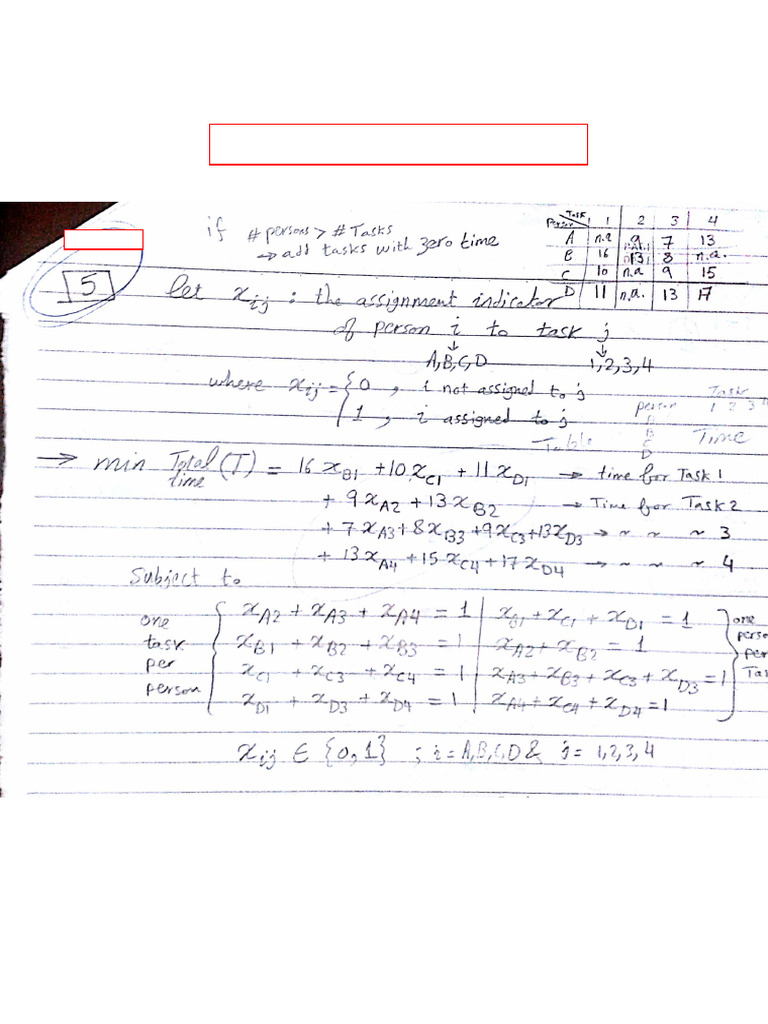 if # persons > # Tasks
→ add tasks with zero time
Task
Person 1 2 3 4
A n.a 9 7 13
B 16 13 8 n.a.
C 10 n.a 9 15
D 11 n.a. 13 17
5 Let xij : the assignment indicator
of person i to task j
A,B,C,D 1,2,3,4
where xij = { 0 , i not assigned to j
1 , i assigned to j
Task
person 1 2 3 4
B
C
D
Time
Table
→ min Total time (T) = 16 xB1 + 10 xC1 + 11 xD1 → time for Task 1
+ 9 xA2 + 13 xB2 → Time for Task 2
+ 7 xA3 + 8 xB3 + 9 xC3 + 13 xD3 → ~ ~ ~ 3
+ 13 xA4 + 15 xC4 + 17 xD4 → ~ ~ ~ 4
Subject to
one task per person
xA2 + xA3 + xA4 = 1 | xB1 + xC1 + xD1 = 1
xB1 + xB2 + xB3 = 1 | xA2 + xB2 = 1
xC1 + xC3 + xC4 = 1 | xA3 + xB3 + xC3 + xD3 = 1
xD1 + xD3 + xD4 = 1 | xA4 + xC4 + xD4 = 1
one perso per Ta
xij ∈ {0,1} ; i = A,B,C,D & j = 1,2,3,4